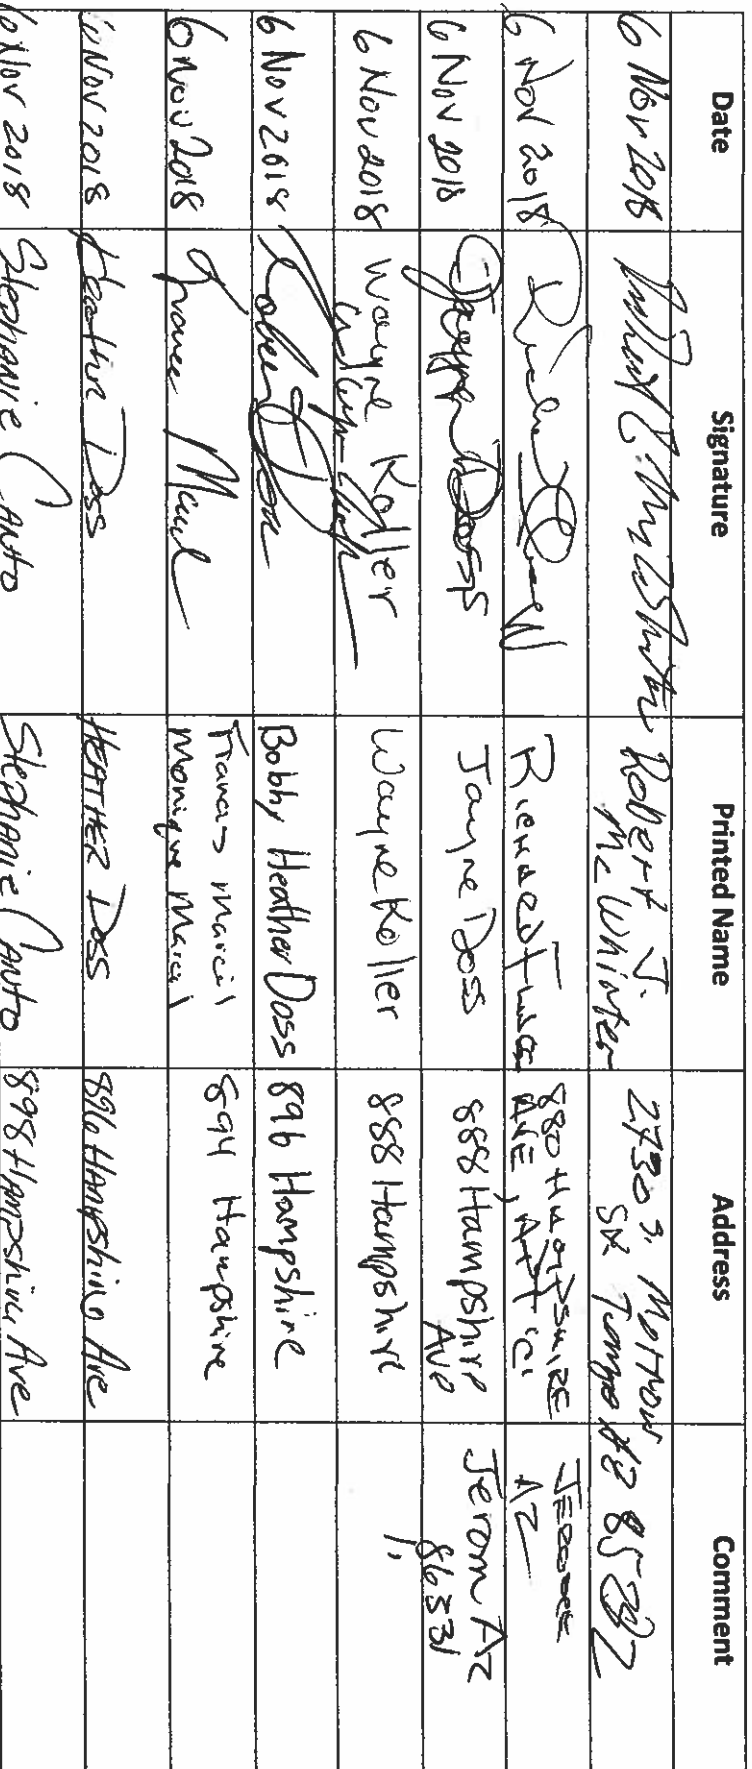 Date Signature Printed Name Address Comment
6 Nov 2018 Robert J. McWhirter 2730 S. Tempe AZ 85282
6 Nov 2018 880 HAMPSHIRE AVE, APT 'C' JEROME AZ
6 Nov 2018 Jayne Doss Jayne Doss 888 Hampshire Ave Jerom Az 86331
6 Nov 2018 Wayne Koller Wayne Koller 888 Hampshire "
6 Nov 2018 Bobby Heather Doss 896 Hampshire
6 Nov 2018 Francis Marcil Monique Marcil 894 Hampshire
6 Nov 2018 Heather Doss HEATHER DOSS 896 Hampshire Ave
6 Nov 2018 Stephanie Canto Stephanie Canto 898 Hampshire Ave